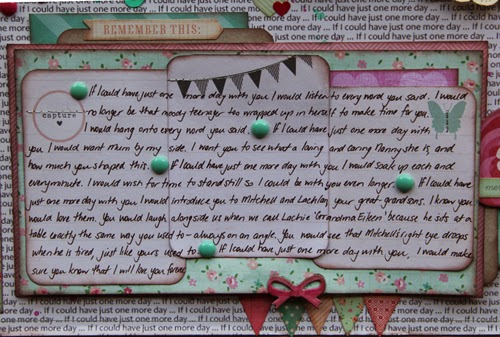 If I could have just one more day ... If I could have just one more day ...
REMEMBER THIS:
capture
If I could have just one more day with you I would listen to every word you said. I would
no longer be that moody teenager too wrapped up in herself to make time for you.
I would hang onto every word you said. If I could have just one more day with
you I would want mum by my side. I want you to see what a loving and caring Nanny she is, and
how much you shaped this. If I could have just one more day with you I would soak up each and
every minute. I would wish for time to stand still so I could be with you even longer. If I could have
just one more day with you I would introduce you to Mitchell and Lachlan, your great grandsons. I know you
would love them. You would laugh alongside us when we call Lachie 'Grandma Eileen' because he sits at a
table exactly the same way you used to - always on an angle. You would see that Mitchell's right eye droops
when he is tired, just like yours used to. If I could have just one more day with you, I would make
sure you know that I will love you forever
just one more day ... If I could have just one more day ...